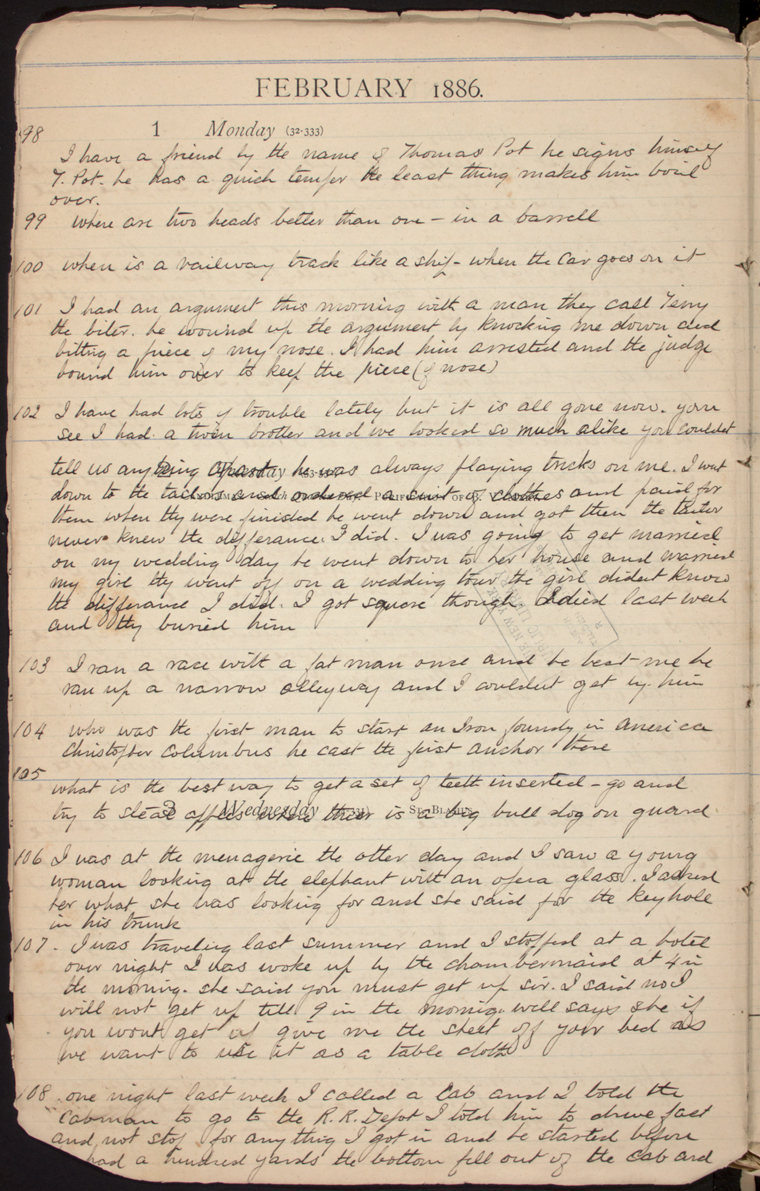 FEBRUARY 1886.
98 1 Monday (32-333)
I have a friend by the name of Thomas Pot he signs himself
T. Pot. he has a quick temper the least thing makes him boil
over.
99 where are two heads better than one – in a barrell
100 when is a railway track like a ship – when the Car goes on it
101 I had an argument this morning with a man they call
the biter. he wound up the argument by knocking me down and
biting a piece of my nose. I had him arrested and the judge
bound him over to keep the piece (of nose)
102 I have had lots of trouble lately but it is all gone now. you
see I had a twin brother and we looked so much alike you couldet
tell us anything apart he was always playing tricks on me. I went
down to the tailors and ordered a suit of clothes and paid for
them when thy were finished he went down and got them the tailer
never knew the differance. I did. I was going to get married
on my wedding day he went down to her house and married
my girl thy went off on a wedding tour the girl dident know
the differance I did. I got square though I died last week
and thy buried him
103 I ran a race with a fat man once and he beat me he
ran up a narrow alleyway and I couldent get by him
104 who was the first man to start an Iron foundry in america
Christopher Columbus he cast the first anchor there
105
what is the best way to get a set of teeth inserted – go and
3 Wednesday
try to steal apples where ther is a big bull dog on guard
106 I was at the menagerie the other day and I saw a young
woman looking at the elephant with an opera glass. I asked
her what she was looking for and she said for the keyhole
in his trunk
107. I was traveling last summer and I stopped at a hotel
over night I was woke up by the chambermaid at 4 in
the morning. she said you must get up sir. I said no I
will not get up till 9 in the morning. well says she if
you wont get up give me the sheet off your bed as
we want to use it as a table cloth
108. one night last week I called a Cab and I told the
Cabman to go to the R.R. Depot I told him to drive fast
and not stop for anything I got in and he started before
had a hundred yards the bottom fell out of the Cab and